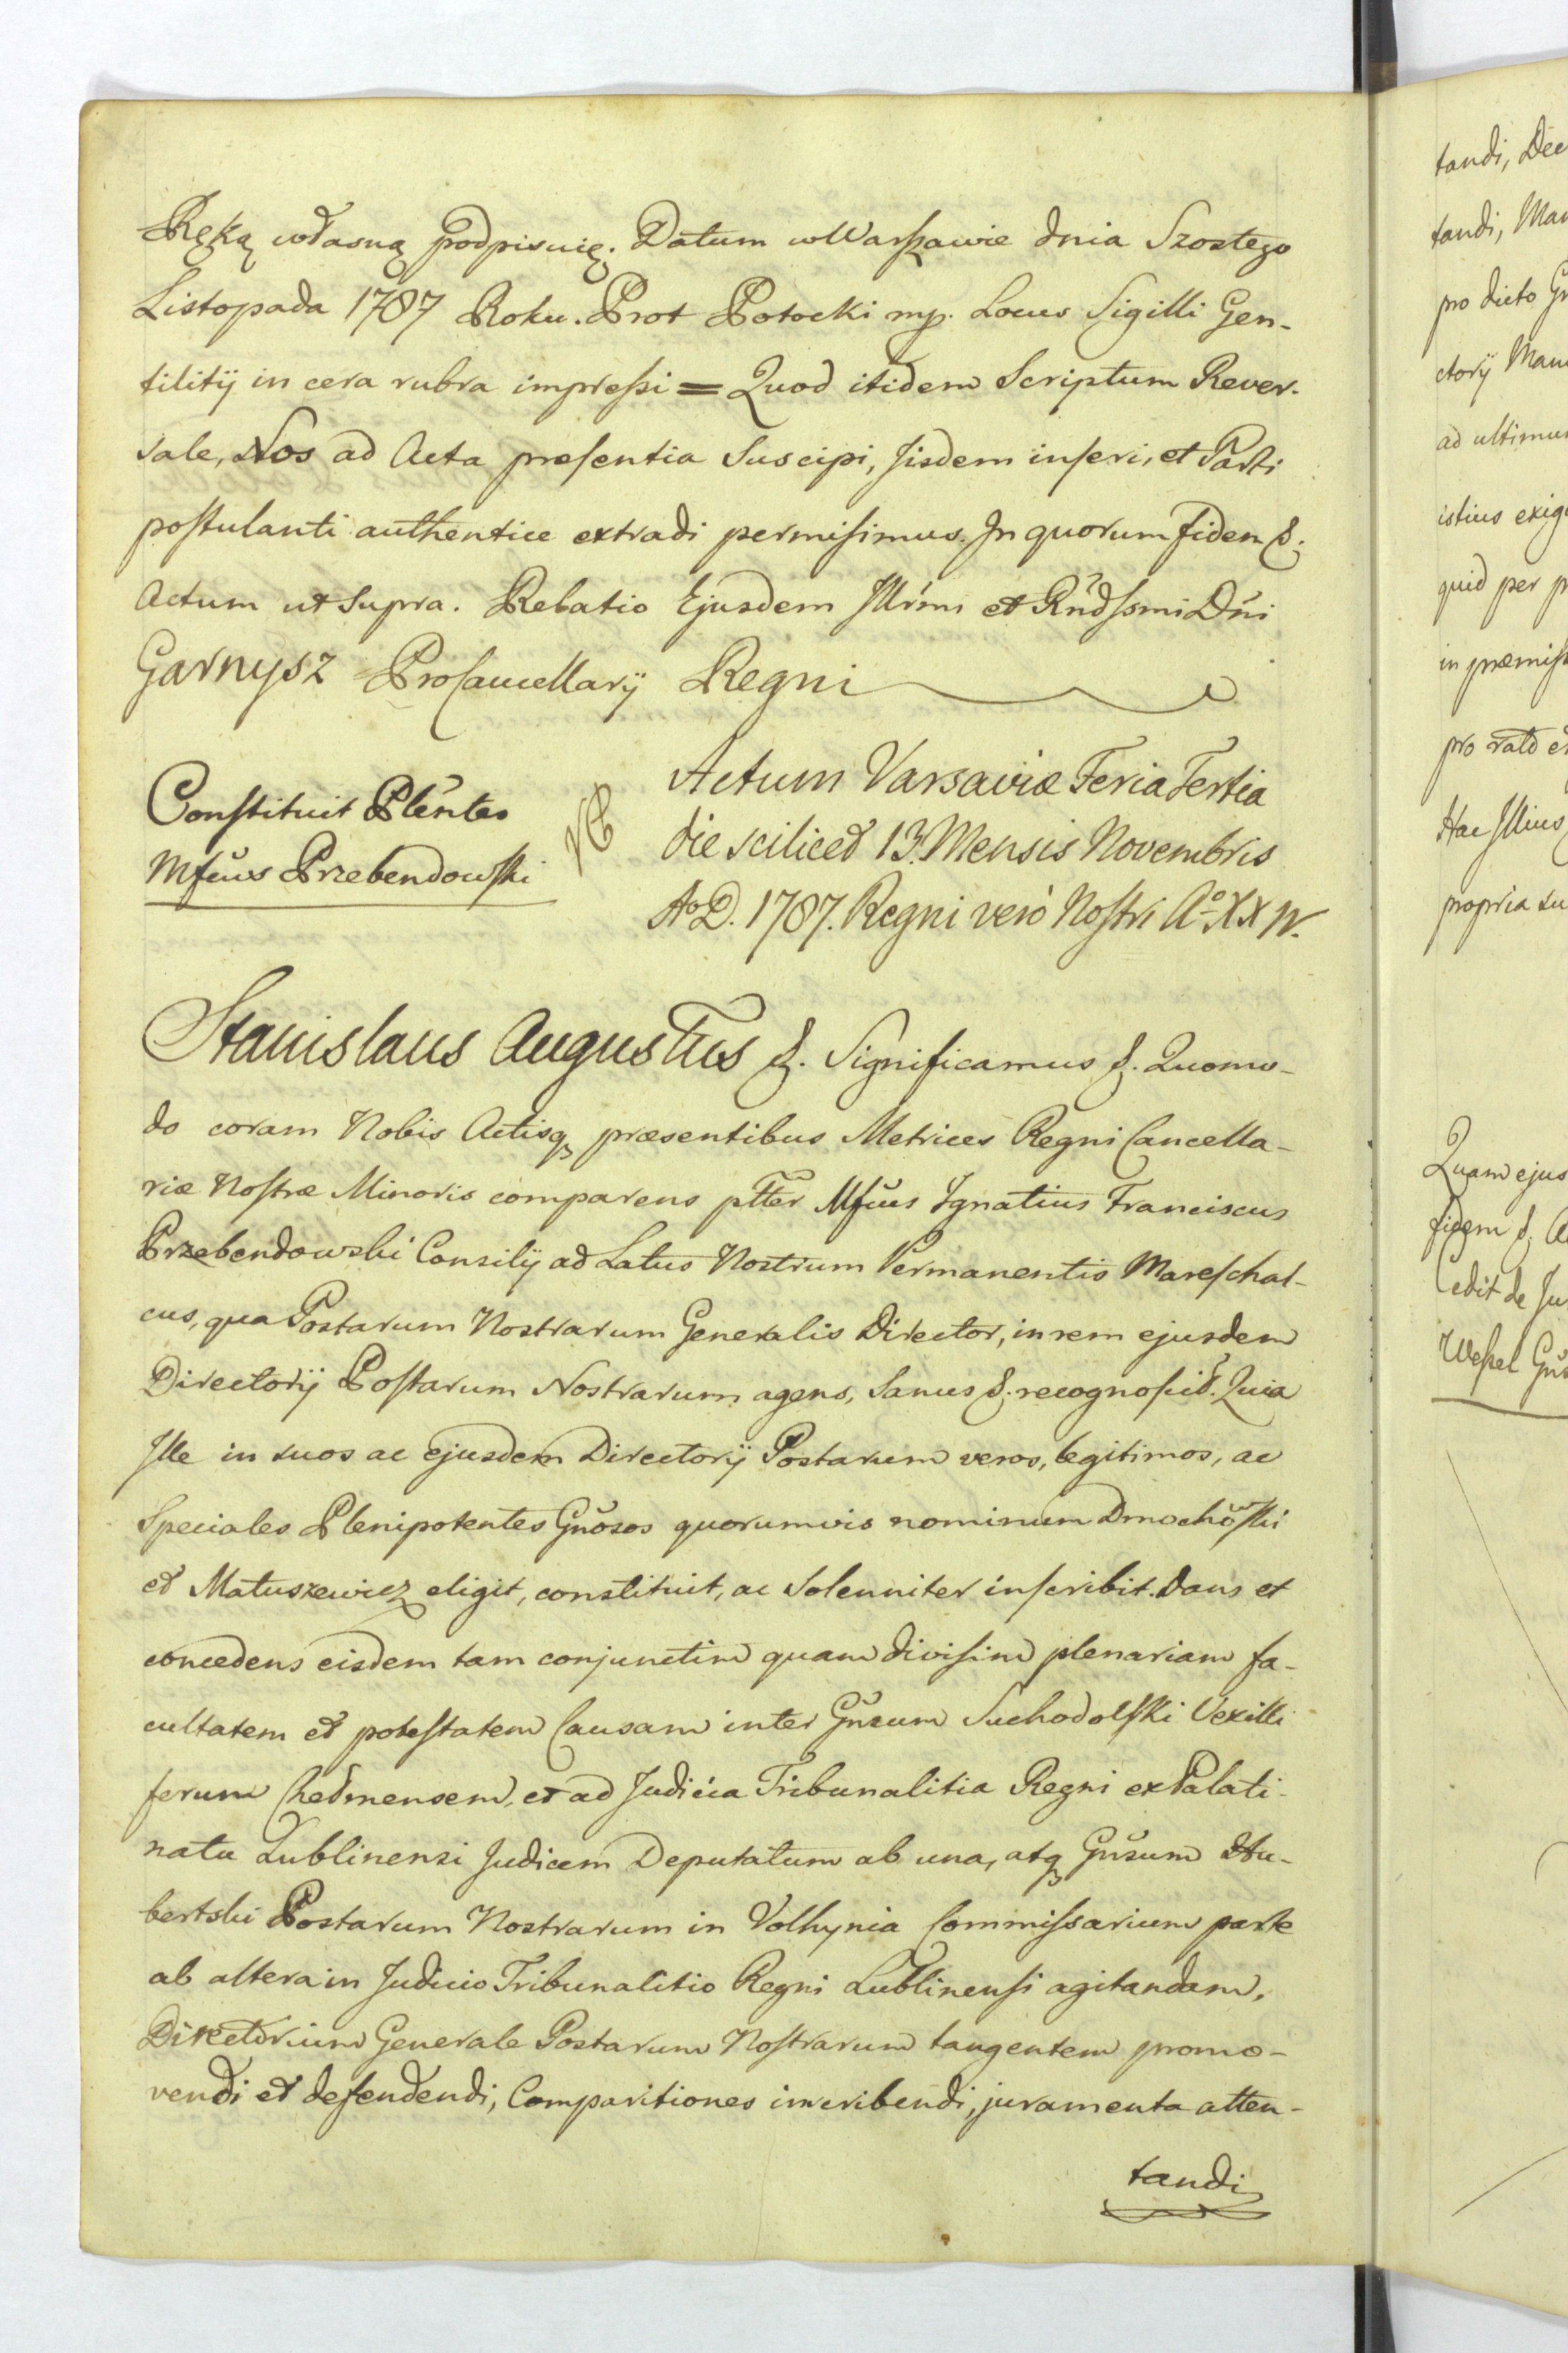 Ręką własną podpisuię. Datum w Warszawie dnia Szostego
Listopada 1787 Roku. Prot Potocki mp. Locus Sigilli Gen-
tilitÿ in cera rubra impressi = Quod itidem Scriptum Rever-
sale, Nos ad Acta præsentia Suscipi, Jisdem inseri, et Parti
postulanti authentice extradi permisimus. In quorum fidem &.
Actum ut Supra. Relatio Ejusdem Illrmi et Rndssmi Dni
Garnysz ProCancellarÿ Regni
Constituit Plentes
Mfcus Przebendowski
Actum Varsaviæ Feria Tertia
die scilicet 13. Mensis Novembris
Ao D. 1787. Regni vero Nostri Ao XXIV.
Stanislaus Augustus &. Significamus &. Quomo-
do coram Nobis Actisq præsentibus Metrices Regni Cancella-
riæ Nostræ Minoris comparens ptter Mfcus Ignatius Franciscus
Przebendowski Consilÿ ad Latus Nostrum Permanentis Mareschal-
cus, qua Postarum Nostrarum Generalis Director, in rem ejusdem
Directorÿ Postarum Nostrarum agens, Sanus &. recognoscit. Quia
Ille in suos ac ejusdem Directorÿ Postarum veros, legitimos, ac
Speciales Plenipotentes Gnosos quorumvis nominum Dmochowski
et Matuszewicz eligit, constituit, ac Solenniter inscribit. Dans et
concedens eisdem tam conjunctim quam divisim plenariam fa-
cultatem et potestatem Causam inter Gnsum Suchodolski Vexilli
ferum Chelmensem, et ad Judicia Tribunalitia Regni ex Palati-
natu Lublinensi Judicem Deputatum ab una, atq Gnsum Hu-
bertski Postarum Nostrarum in Volhynia Commissarium parte
ab altera in Judicio Tribunalitio Regni Lublinensi agitandam,
Directorium Generale Postarum Nostrarum tangentem promo-
vendi et defendendi, Comparitiones inscribendi, juramenta atten-
tandi
tandi, Dec
tandi, Man
pro dicto Gn
ctorÿ Man
ad ultimum
istius exig
quid per p
in præmiss
pro rato et
Hac Illius
propria su
Quam ejus
fidem &. A
Cedit de Ju
Wessel Gns